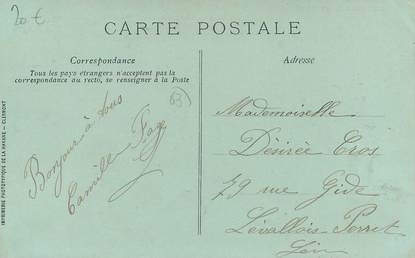 20 €
CARTE POSTALE
Correspondance
Tous les pays étrangers n'acceptent pas la
correspondance au recto, se renseigner à la Poste
Adresse
63
Bonjour à tous
Camille
Mademoiselle
Désirée Cros
79 rue Gide
Levallois-Perret
IMPRIMERIE PHOTOTYPIQUE DE LA HALLE — CLERMONT